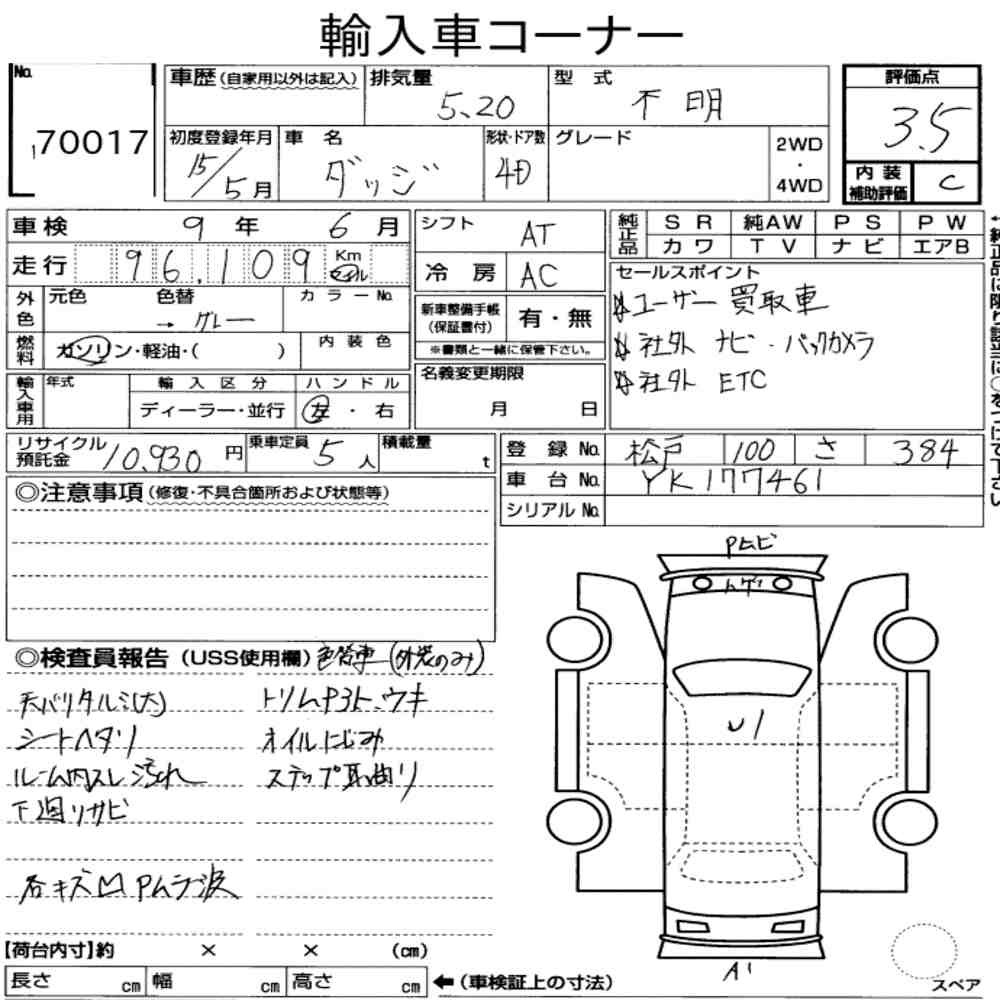 輸入車コーナー
No. 70017
車歴(自家用以外は記入)
排気量 5.20
型式 不明
評価点 3.5
初度登録年月 15/5月
車名 ダッジ
形状・ドア数 4D
グレード
2WD・4WD
内装補助評価 C
車検 9年 6月
シフト AT
純正品 SR 純AW PS PW
カワ TV ナビ エアB
走行 96,109 Km マイル
冷房 AC
セールスポイント
ユーザー買取車
社外 ナビ・バックカメラ
社外 ETC
外色 元色 色替 → グレー
カラーNo.
新車整備手帳(保証書付) 有・無
※書類と一緒に保管下さい。
燃料 ガソリン・軽油・( )
内装色
名義変更期限 月 日
輸入車用 年式
輸入区分 ディーラー・並行
ハンドル 左・右
リサイクル預託金 10,930円
乗車定員 5人
積載量 t
登録No. 松戸 100 さ 384
車台No. YK177461
シリアルNo.
◎注意事項(修復・不具合箇所および状態等)
◎検査員報告(USS使用欄) 色替車(外装のみ)
天バリタルミ(大) トリム
シートヘタリ オイルにじみ
ルーム内スレ汚れ ステップ取曲り
下廻りサビ
各キズ凹 Pムラ 波
PムビU
U1
A1
スペア
【荷台内寸】約 × × (cm)
長さ cm 幅 cm 高さ cm ←(車検証上の寸法)